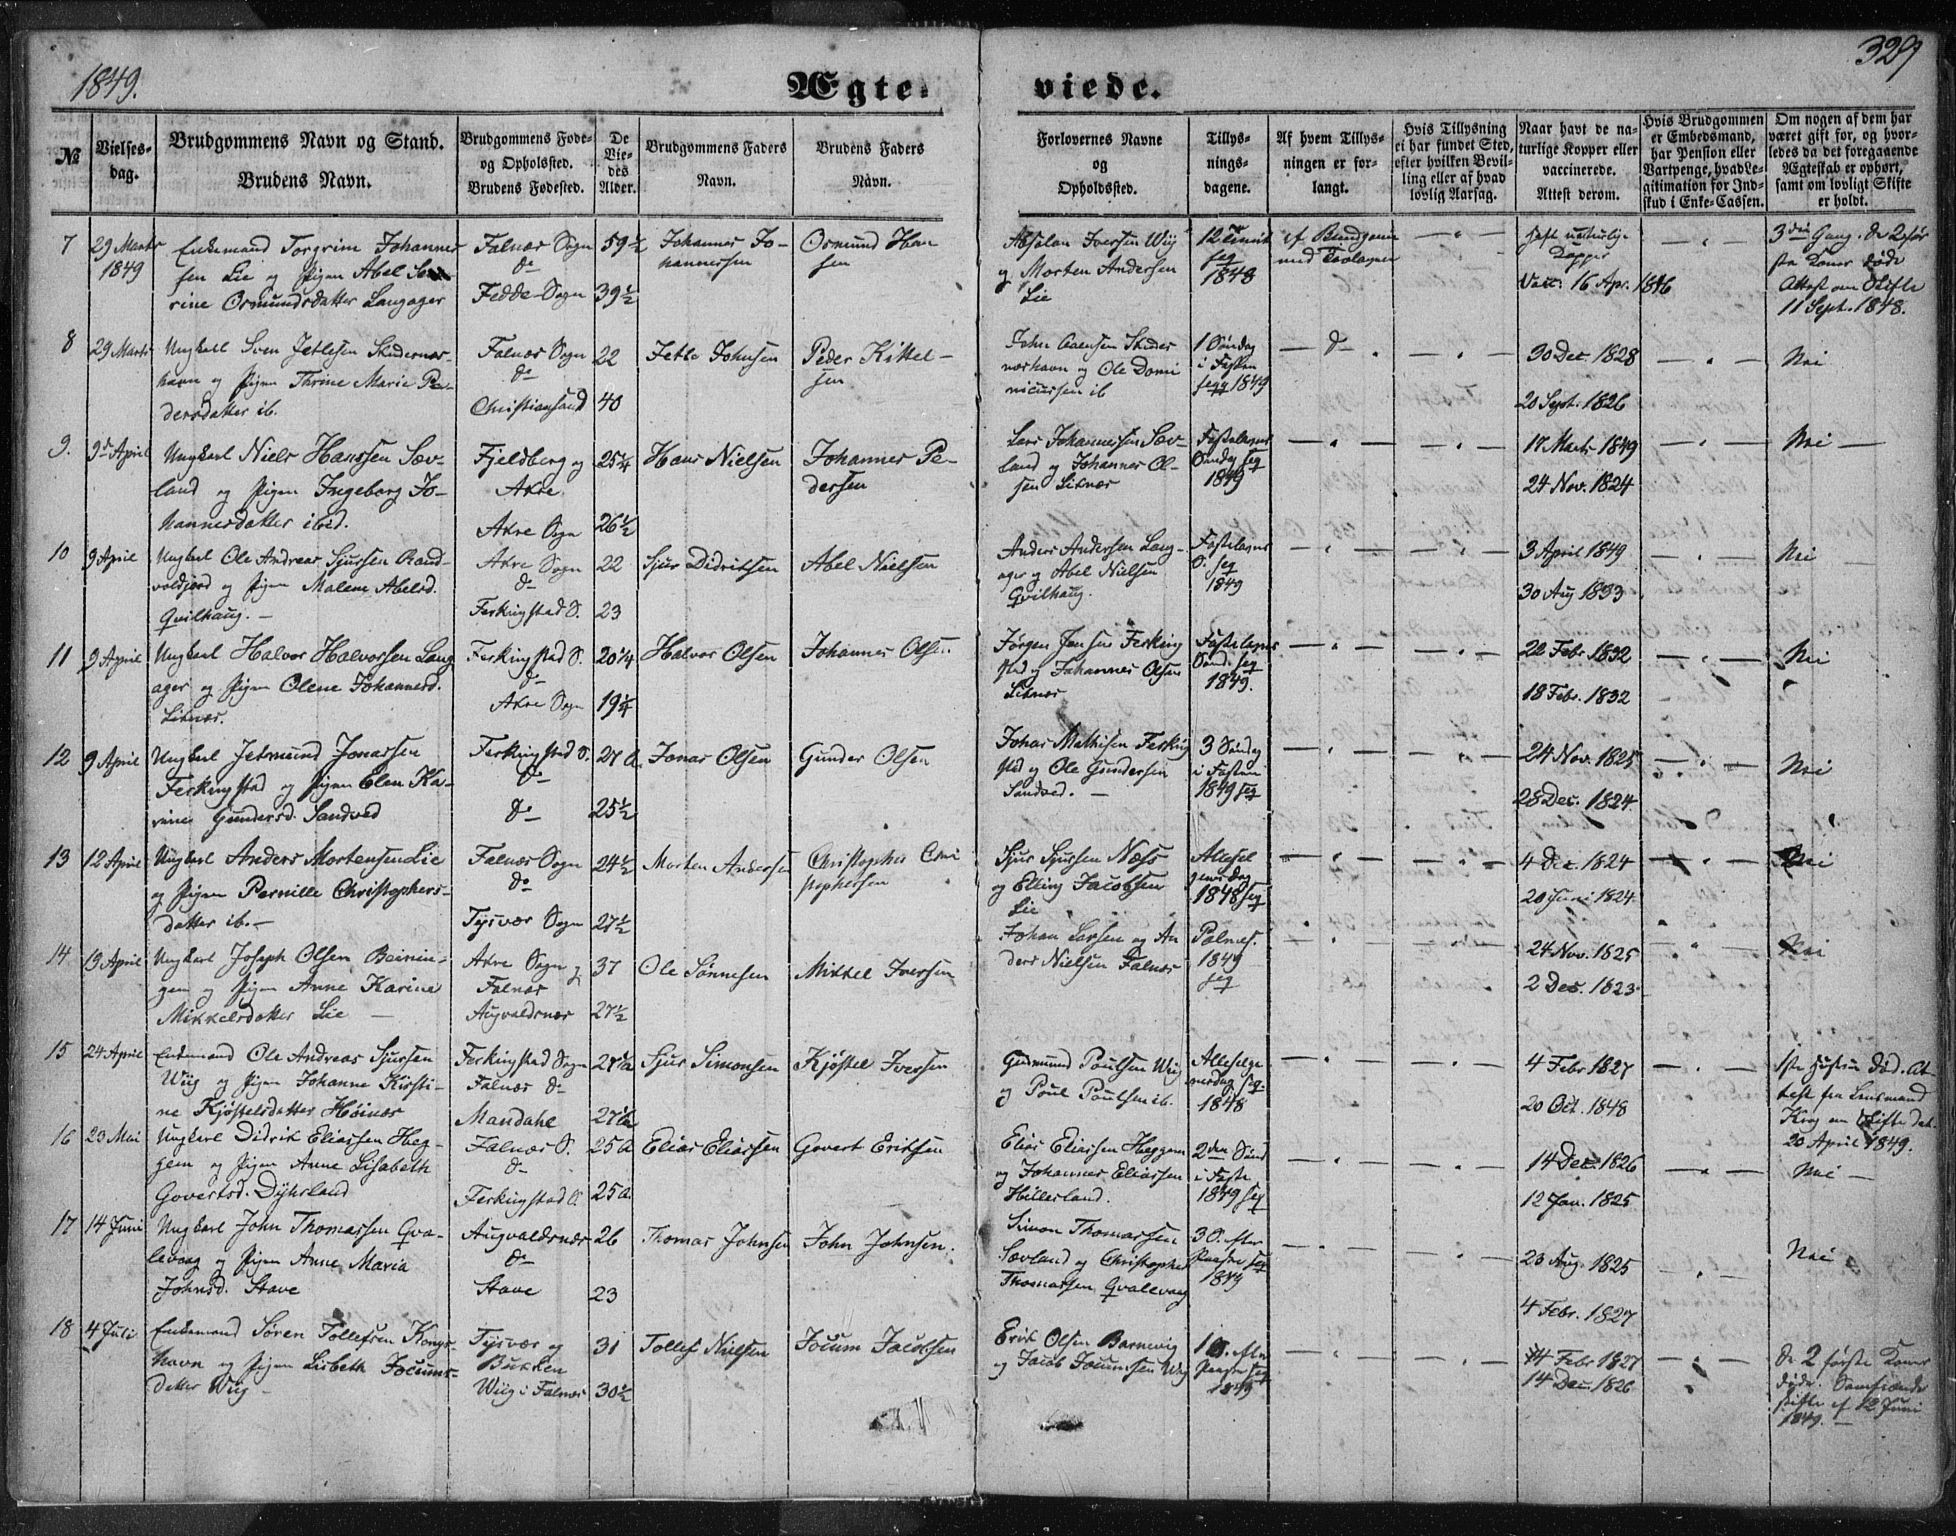 1849.
Ægte-
viede.
329
№
Vielses-
dag.
Brudgommens Navn og Stand.
Brudens Navn.
Brudgommens Føde-
og Opholdssted.
Brudens Fødested.
De
Vie-
des
Alder.
Brudgommens Faders
Navn.
Brudens Faders
Navn.
Forlovernes Navne
og
Opholdssted.
Tillys-
nings-
dagene.
Af hvem Tillys-
ningen er for-
langt.
Hvis Tillysning
ei har fundet Sted,
efter hvilken Bevil-
ling eller af hvad
lovlig Aarsag.
Naar havt de na-
turlige Kopper eller
vaccinerede.
Attest derom.
Hvis Brudgommen
er Embedsmand,
har Pension eller
Vartpenge, hvad Le-
gitimation for Ind-
skud i Enke-Cassen.
Om nogen af dem har
været gift for, og hvor-
ledes da det foregaaende
Ægteskab er ophørt,
samt om lovligt Skifte
er holdt.
7
29 Marts
1849
Enkemand Torgrim Johannes
sen Lie og Pigen Abel
rine Osmundsdatter Langager
Falnæs Sogn
do
Fedde Sogn
59½
39½
Johannes Jo-
hannessen
Osmund Han
sen
Absalon Iversen Wiig
og Morten Andersen
Lie
12 Trinit
seq
1848
af Brudgom
med Forloverne
havt naturlige
Kopper
Vacc. 16 Apr. 1816
3die Gang. De 2 før
ste Koner døde
Attest om Skifte
11 Sept. 1848.
8
29 Marts
Ungkarl Sven Jetlesen Skudenæs-
havn og Pigen Thrine Marie Pe-
dersdatter ib.
Falnæs Sogn
do
Christiansand
22
40
Jetle Johnsen
Peder Kittel-
sen
John Skudes
næshavn og Ole Domi
nicussen ib
1 Søndag
i Fasten
seqq 1849
30 Dec. 1828
20 Sept. 1826
Nei
9.
9de April
Ungkarl Niels Hanssen Sæv-
land og Pigen Ingeborg Jo-
hannesdatter ibid.
Fjeldberg og
Akre
Akre Sogn
25¼
26½
Hans Nielsen
Johannes Pe-
dersen
Lars Johannessen Sæv-
land og Johannes Ol-
sen Liknæs
Fastelavns
Søndag seq
1849
17 Marts 1849
24 Nov. 1824
Nei
10
9 April
Ungkarl Ole Andreas Sjursen Sand-
voldjord og Pigen Malene Abelsd.
Qvilhaug.
Akre Sogn
do
Ferkingstad S.
22
23
Sjur Didriksen
Abel Nielsen
Anders Andersen Lang-
ager og Abel Nielsen
Qvilhaug.
Fastelavns
S. seq
1849
3 April 1849
30 Aug 1833
Nei
11
9 April
Ungkarl Halvor Halvorsen Lang
ager og Pigen Olene Johannesd.
Liknæs.
Ferkingstad S.
do
Akre Sogn
20¼
19¼
Halvor Olsen
Johannes Olsen
Jørgen Jensen Ferking
stad og Johannes Olsen
Liknæs
Fastelavns
Sønd. seq
1849.
22 Febr 1832
18 Febr. 1832
Nei
12
9 April
Ungkarl Jetmund Jonassen
Ferkingstad og Pigen Elen Ka-
rine Gundersd. Sandved
Ferkingstad S.
do
do
27 A.
25½
Jonas Olsen
Gunder Olsen
Johas Mathisen Ferking
stad og Ole Gundersen
Sandved.
3 Søndag
i Fasten
1849 seq
24 Nov. 1825
28 Dec. 1824
Nei
13
12 April
Ungkarl Anders Mortensen Lie
og Pigen Pernille Christophers-
datter ib.
Falnæs Sogn
do
Tysvær Sogn
24½
27½
Morten Andersen
Christopher Chri
stophersen
Sjur Sjursen Næs
og Elling Jacobsen
Lie
Allehel
gensdag
1848 seq
4 Dec. 1824
20 Juni 1824
Nei
14
19 April
Ungkarl Joseph Olsen Beinin-
gen og Pigen Anne Karine
Mikkelsdatter Lie
Akre Sogn og
Falnæs
Augvaldsnæs
37
27½
Ole Sønnesen
Mikkel Iversen
Johan Larsen og An
ders Nielsen Falnæs
Palmes.
1849
seq
24 Nov. 1825
2 Dec. 1823
Nei
15
24 April
Enkemand Ole Andreas Sjursen
Wiig og Pigen Johanne Kirsti-
ne Kjøstelsdatter Høinæs
Ferkingstad Sogn
Falnæs do
Mandahl
27½
27½
Sjur Simonsen
Kjøstel Iversen
Gudmund Poulsen Wiig
og Poul Poulsen ib.
Allehelge
nsdag seq.
1848
4 Febr 1827
20 Oct. 1848
1ste Hustru død. At-
test fra Lensmand
Krog om Skifte dat.
20 April 1849.
16
20 Mai
Ungkarl Didrik Eliassen Heg-
gem og Pigen Anne Lisabeth
Govertsd. Dyhrland
Falnæs S.
do
Ferkingstad S.
25 A
25 A.
Elias Eliassen
Govert Eriksen
Elias Eliassen Heggem
og Johannes Eliassen
Hillerland.
2den Sønd
i Faste
1849 seq
14 Dec. 1826
12 Jan. 1825
Nei
17
14 Juni
Ungkarl John Thomassen Qva-
levaag og Pigen Anne Maria
Johnsd. Stave
Augvaldsnæs
do
Stave
26
23
Thomas Johnsen
John Johnsen.
Simon Thomassen
Sævland og Christopher
Thomassen Qvalevaag
3 S. efter
Paaske seq
1849
23 Aug. 1825
4 Febr. 1827
Nei
18
4 Juli
Enkemand Søren Tollefsen Kongs-
havn og Pigen Lisbeth Jocums-
datter Wiig
Tysvær og
Bukken
Wiig i Falnæs
31
30½
Tollef Nielsen
Jocum Jacobsen
Erik Olsen Barnevig
og Jacob Jocumsen Wiig
1 S. efter
Paaske seq
1849
14 Febr 1827
14 Dec. 1826
De 2 første Koner
døde. Samfrænde
skifte af 12 Juni
1849.